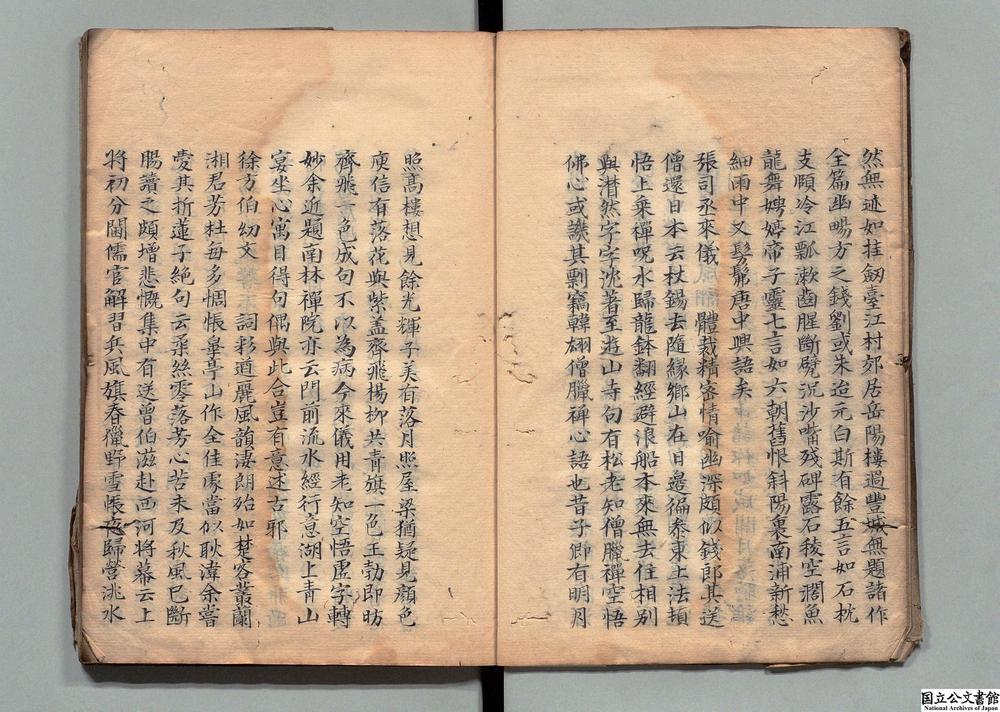 然無迹如挂劔臺江村郊居岳陽樓過豐城無題諸作
全篇幽暢方之錢劉或朱迨元白斯有餘五言如石枕
支頤冷江瓢漱齒腥斷壁沉沙嘴殘碑露石稜空濶魚
龍舞娉婷帝子靈七言如六朝舊恨斜陽裏南浦新愁
細雨中又髣髴唐中興語矣
張司丞來儀體裁精密情喻幽深頗似錢郎其送
僧還日本云杖錫去隨緣鄉山在日邊徧叅東土法頓
悟上乘禪呪水歸龍鉢翻經避浪船本來無去住相別
與潸然字字沈著至遊山寺句有松老知僧臘禪空悟
佛心或譏其剽竊韓翃僧臘禪心語也昔子卿有明月
照高樓想見餘光輝子美有落月照屋梁猶疑見顏色
庾信有落花與紫盖齊飛楊柳共青旗一色王勃即昉
齊飛一色成句不以為病今來儀用老知空悟虛字轉
妙余近題南林禪院亦云門前流水經行意湖上青山
宴坐心寓目得句偶與此合豈有意述古耶
徐方伯幼文 詞彩遒麗風韻淒朗殆如楚客叢蘭
湘君芳杜每多惆悵皋亭山作全佳處當似耿湋余嘗
愛其折蓮子絕句云柔絲零落芳心苦未及秋風已斷
腸讀之頗增悲慨集中有送曾伯滋赴西河將幕云上
將初分閫儒官解習兵風旗春獵野雪帳夜歸營洮水
国立公文書館
National Archives of Japan